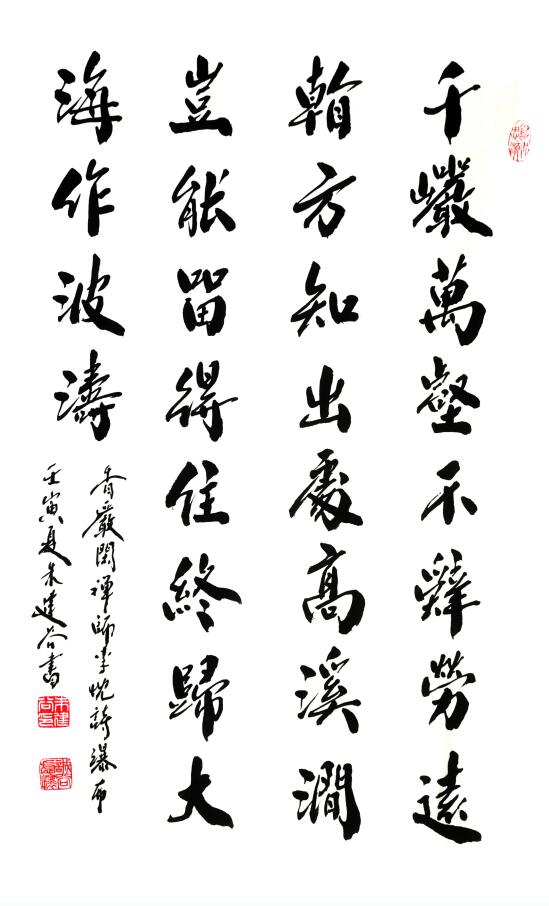 千巖萬壑不辭勞遠
看方知出處高溪澗
豈能留得住終歸大
海作波濤
香嚴閑禪師李忱詩瀑布
壬寅夏朱建谷書